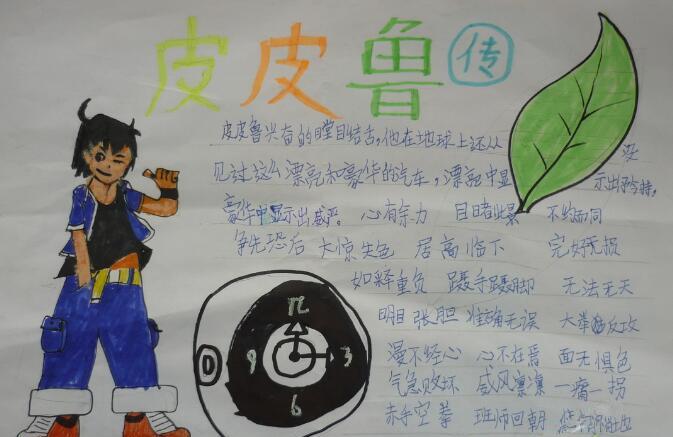 皮皮鲁传
皮皮鲁兴奋的瞠目结舌,他在地球上还从没
见过这么漂亮和豪华的汽车,漂亮中显示出矜持,
豪华中显示出威严。 心有余力 目睹 不约而同
争先恐后 大惊失色 居高临下 完好无损
如释重负 蹑手蹑脚 无法无天
明目张胆 准确无误 大举反攻
漫不经心 心不在焉 面无惧色
气急败坏 威风凛凛 一瘸一拐
赤手空拳 班师回朝
12
9 3
6
D